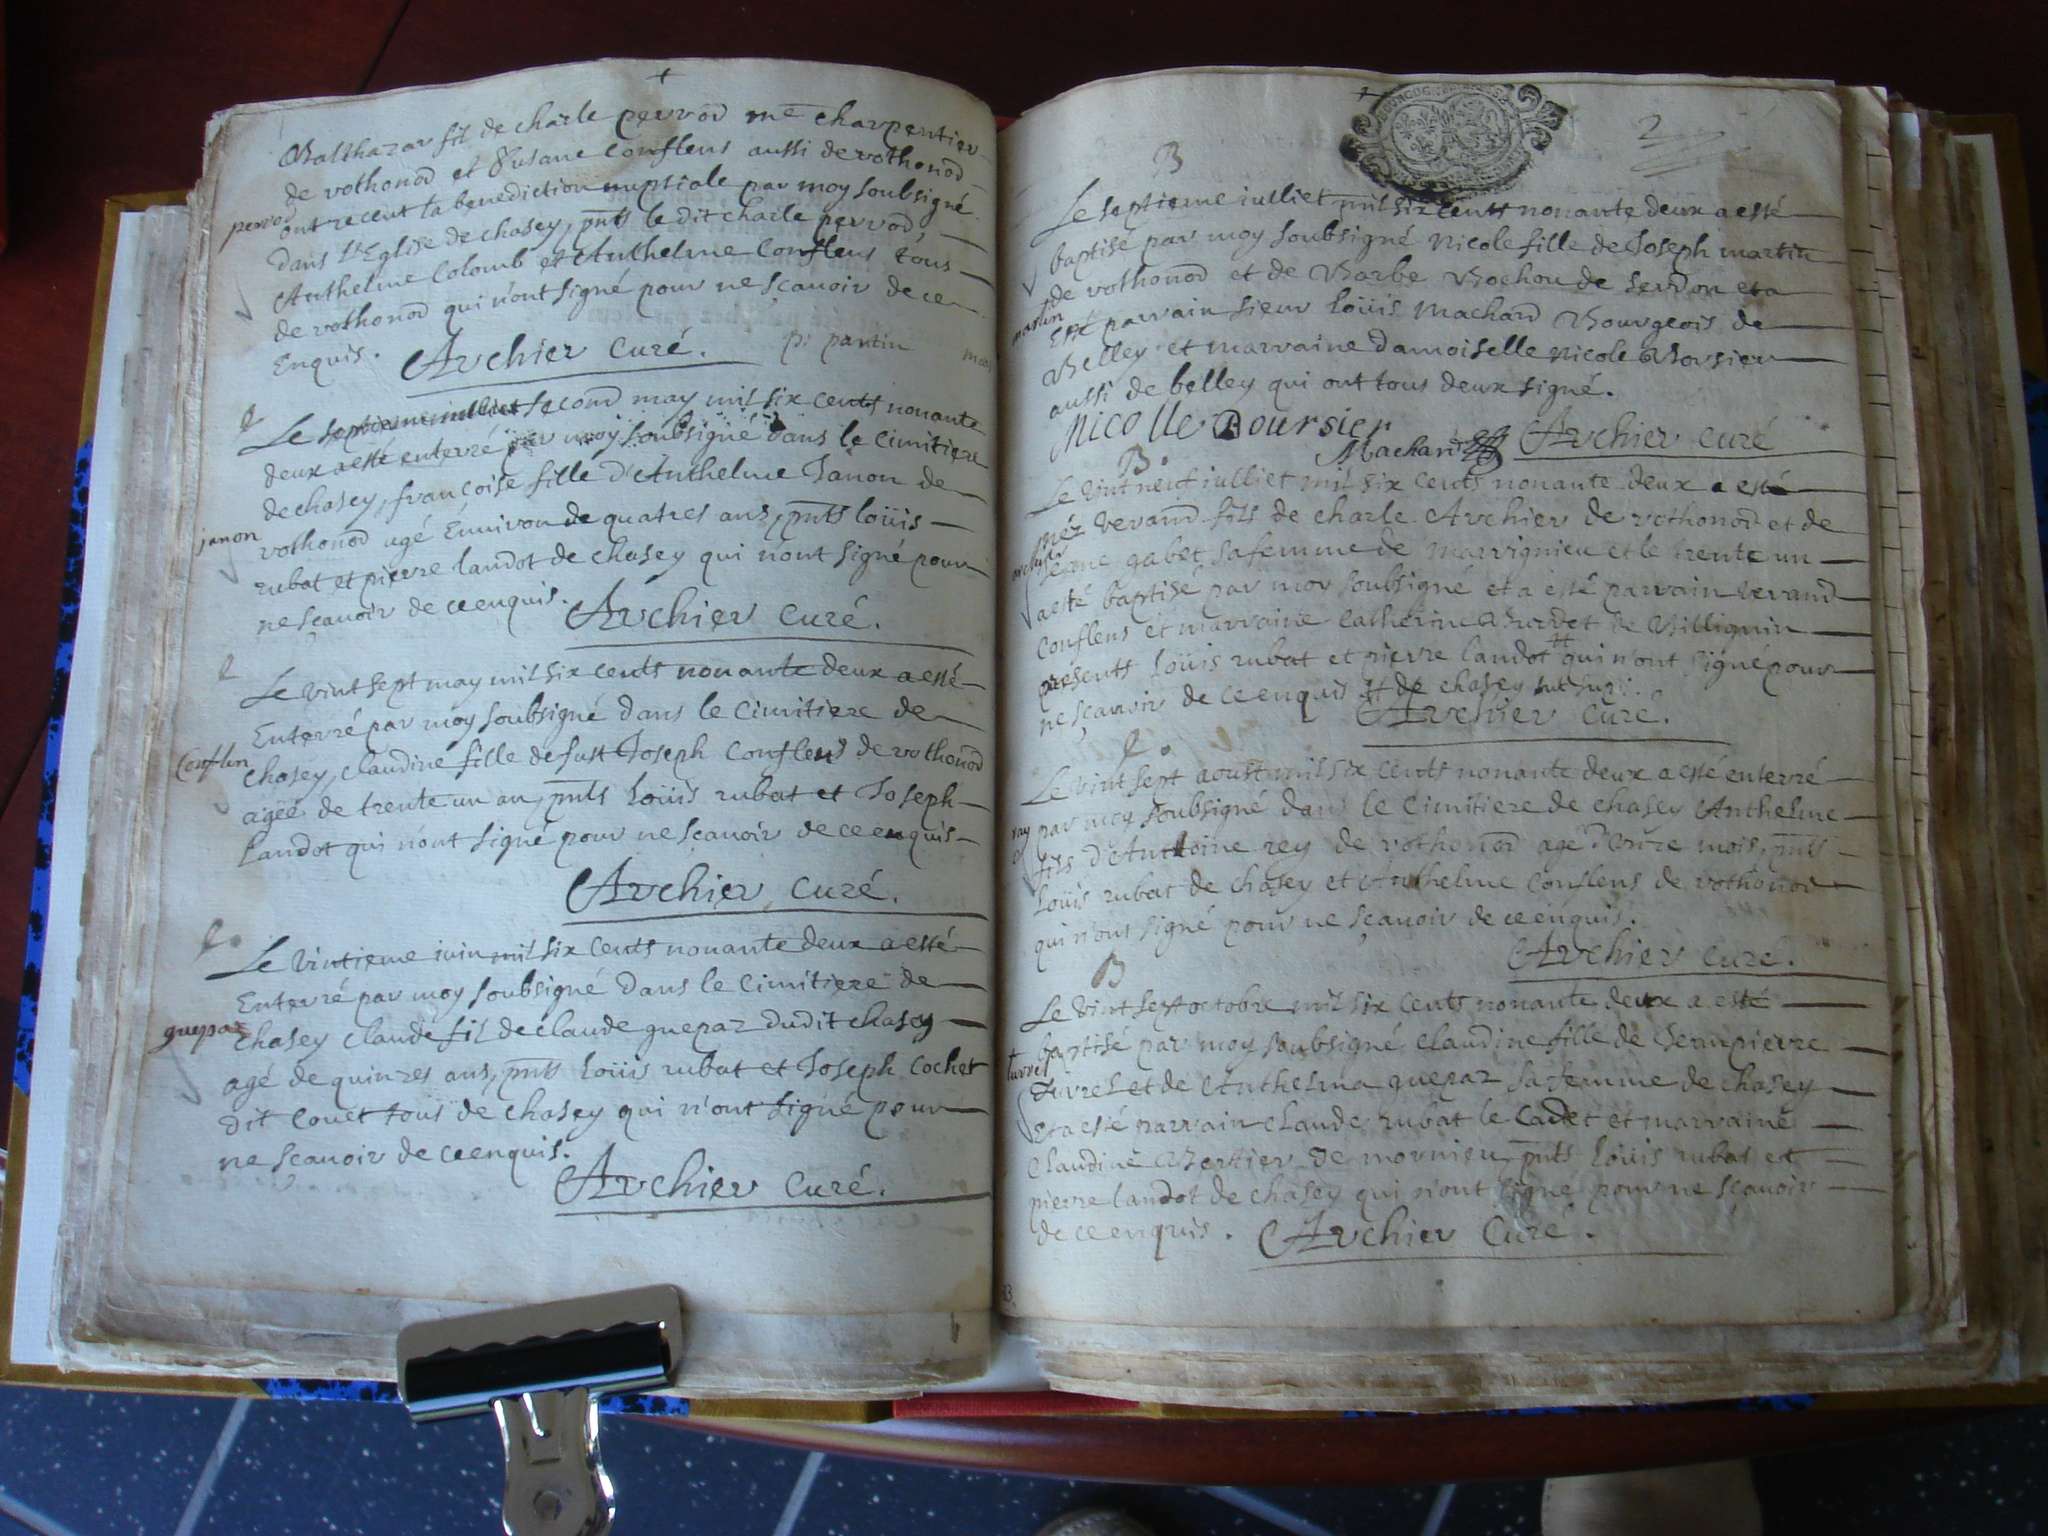 Balthazar fil de charle perrod me charpentier
de vothonod et Susane Conflens aussi de vothonod
perrod
ont recent la benediction nuptiale par moy soubsigné
dans l'Eglise de chasey, pnts le dit charle perrod,
Anthelme Colomb et Anthelme Conflens tous
de vothonod qui n'ont signé pour ne scauoir de ce
Enquis.
Archier Curé.
p: partin
Le second may mil six cents nonante
deux a esté enterré par moy soubsigné dans le Cimitiere
de chasey, francoise fille d'Anthelme Janon de
janon
vothonod agé Enuiron de quatres ans, pnts loüis
rubat et pierre landot de chasey qui n'ont signé pour
ne scauoir de ce enquis.
Archier Curé.
Le vint sept may mil six cents nonante deux a esté
Enterré par moy soubsigné dans le Cimitiere de
Conflen
chasey, claudine fille de fust Joseph Conflens de vothonod
agée de trente un an, pnts loüis rubat et Joseph
landot qui n'ont signé pour ne scauoir de ce enquis
Archier Curé.
Le vintieme iuin mil six cents nonante deux a esté
Enterré par moy soubsigné dans le Cimitiere de
guepaz
chasey claude fil de claude guepaz dudit chasey
agé de quinzes ans, pnts loüis rubat et Joseph Cochet
dit Couet toüs de chasey qui n'ont signé pour
ne scauoir de ce enquis.
Archier Curé.
2
B
Le septieme iulliet mil six cents nonante deux a esté
baptisé par moy soubsigné Nicole fille de Joseph martin
de vothonod et de Barbe Bochon de serdon et a
martin
Esté parrain sieur loüis machard Bourgeois de
Belley et marraine damoiselle nicole Borsier
aussi de belley qui ont tous deux signé.
Nicolle Boursier
Machard
Archier Curé
B.
Le vint neuf iulliet mil six cents nonante deux a esté
néz verand fils de charle Archier de vothonod et de
archier
gabet sa femme de marrignieu et le trente un
a esté baptisé par moy soubsigné et a esté parrain verand
Conflens et marraine Catherine Burdet de Billignin
presents loüis rubat et pierre landot # qui n'ont signé pour
ne scauoir de ce enquis # de chasey
Archier Curé.
Le vint sept aoust mil six cents nonante deux a esté enterré
ray
par moy soubsigné dans le Cimitiere de chasey Anthelme
fils d'Antoine rey de vothonod agé d'onze mois, pnts
loüis rubat de chasey et Anthelme Conflens de vothonod
qui n'ont signé pour ne scauoir de ce enquis.
Archier Curé.
B
Le vint sept octobre mil six cents nonante deux a esté
baptisé par moy soubsigné claudine fille de Jeanpierre
turrel
Turrel et de Anthelma guepaz sa femme de chasey
Et a esté parrain claude rubat le Cadet et marraine
claudine Bertier de mornieu, pnts loüis rubat et
pierre landot de chasey qui n'ont signé pour ne scauoir
de ce enquis.
Archier Curé.